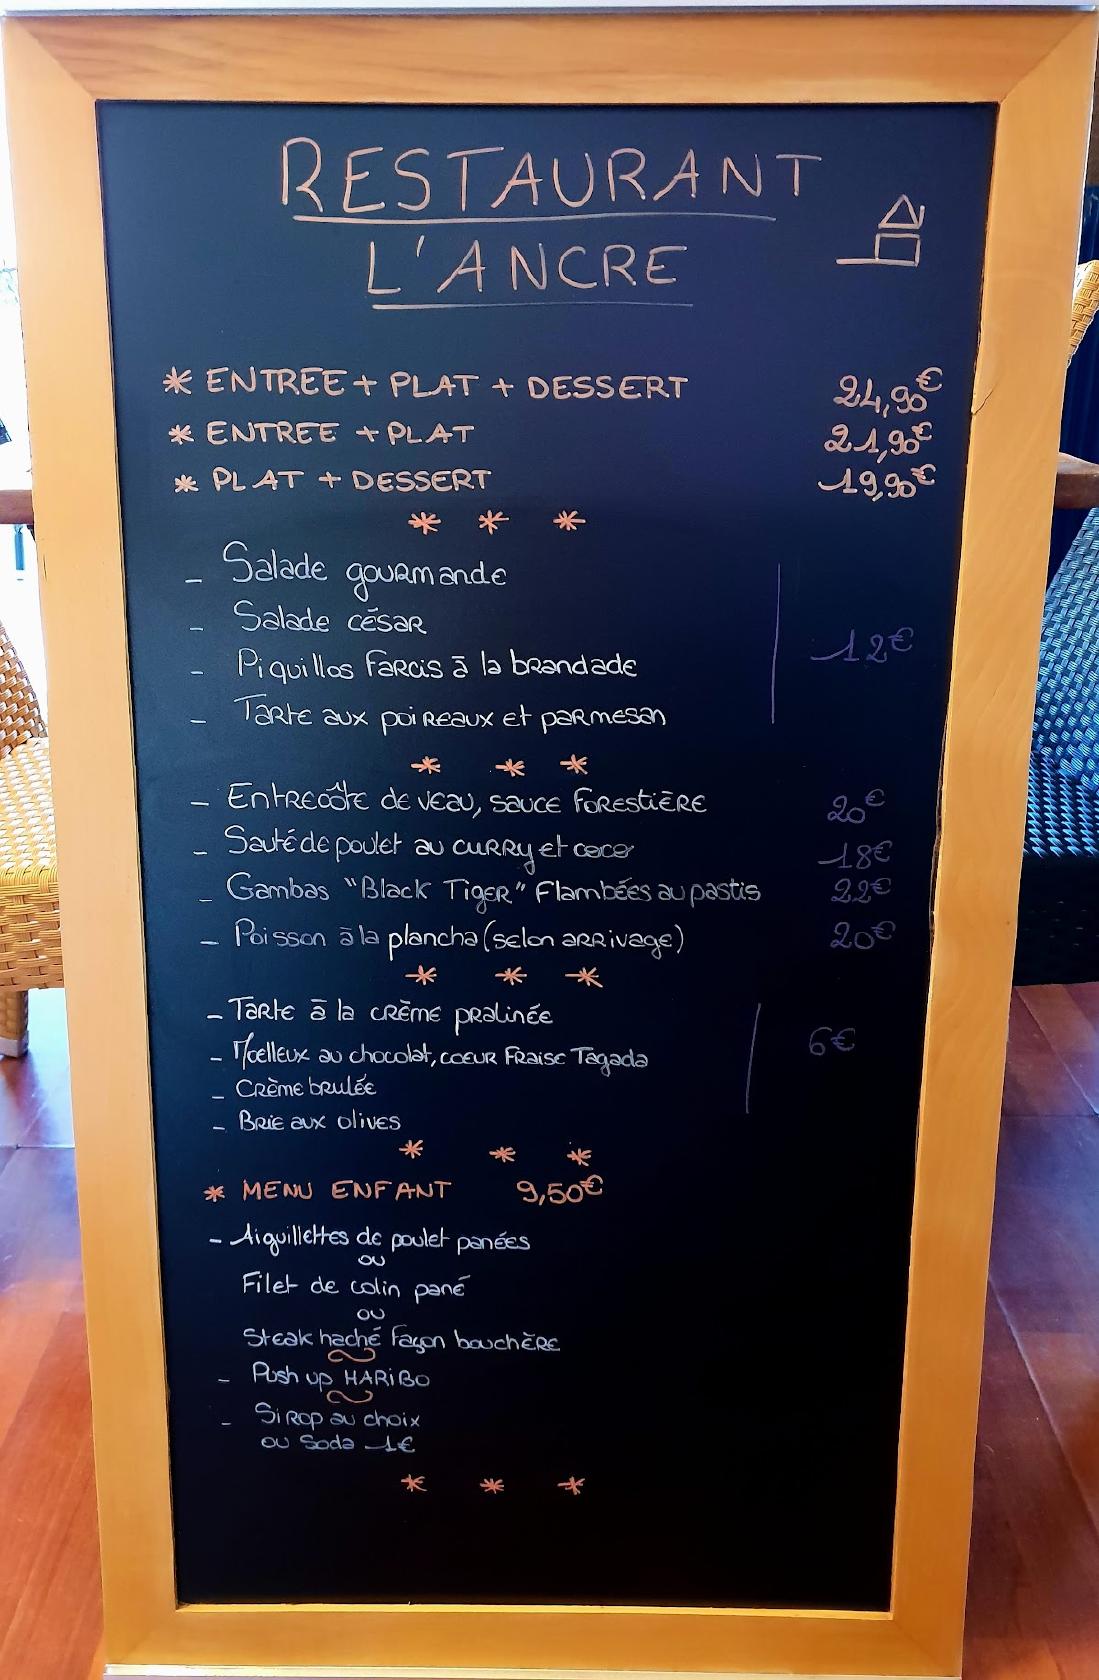 RESTAURANT
L'ANCRE
* ENTREE + PLAT + DESSERT 24,90€
* ENTREE + PLAT 21,90€
* PLAT + DESSERT 19,90€
* * *
- Salade gourmande
- Salade césar
12€
- Piquillos farcis à la brandade
- Tarte aux poireaux et parmesan
* * *
- Entrecôte de veau, sauce forestière 20€
- Sauté de poulet au curry et coco 18€
- Gambas "Black Tiger" Flambées au pastis 22€
- Poisson à la plancha (selon arrivage) 20€
* * *
- Tarte à la crème pralinée
6€
- Moelleux au chocolat, coeur Fraise Tagada
- Crème brulée
- Brie aux olives
* * *
* MENU ENFANT 9,50€
- Aiguillettes de poulet panées
ou
Filet de colin pané
ou
Steak haché façon bouchère
- Push up HARIBO
- Sirop au choix
ou Soda 1€
* * *